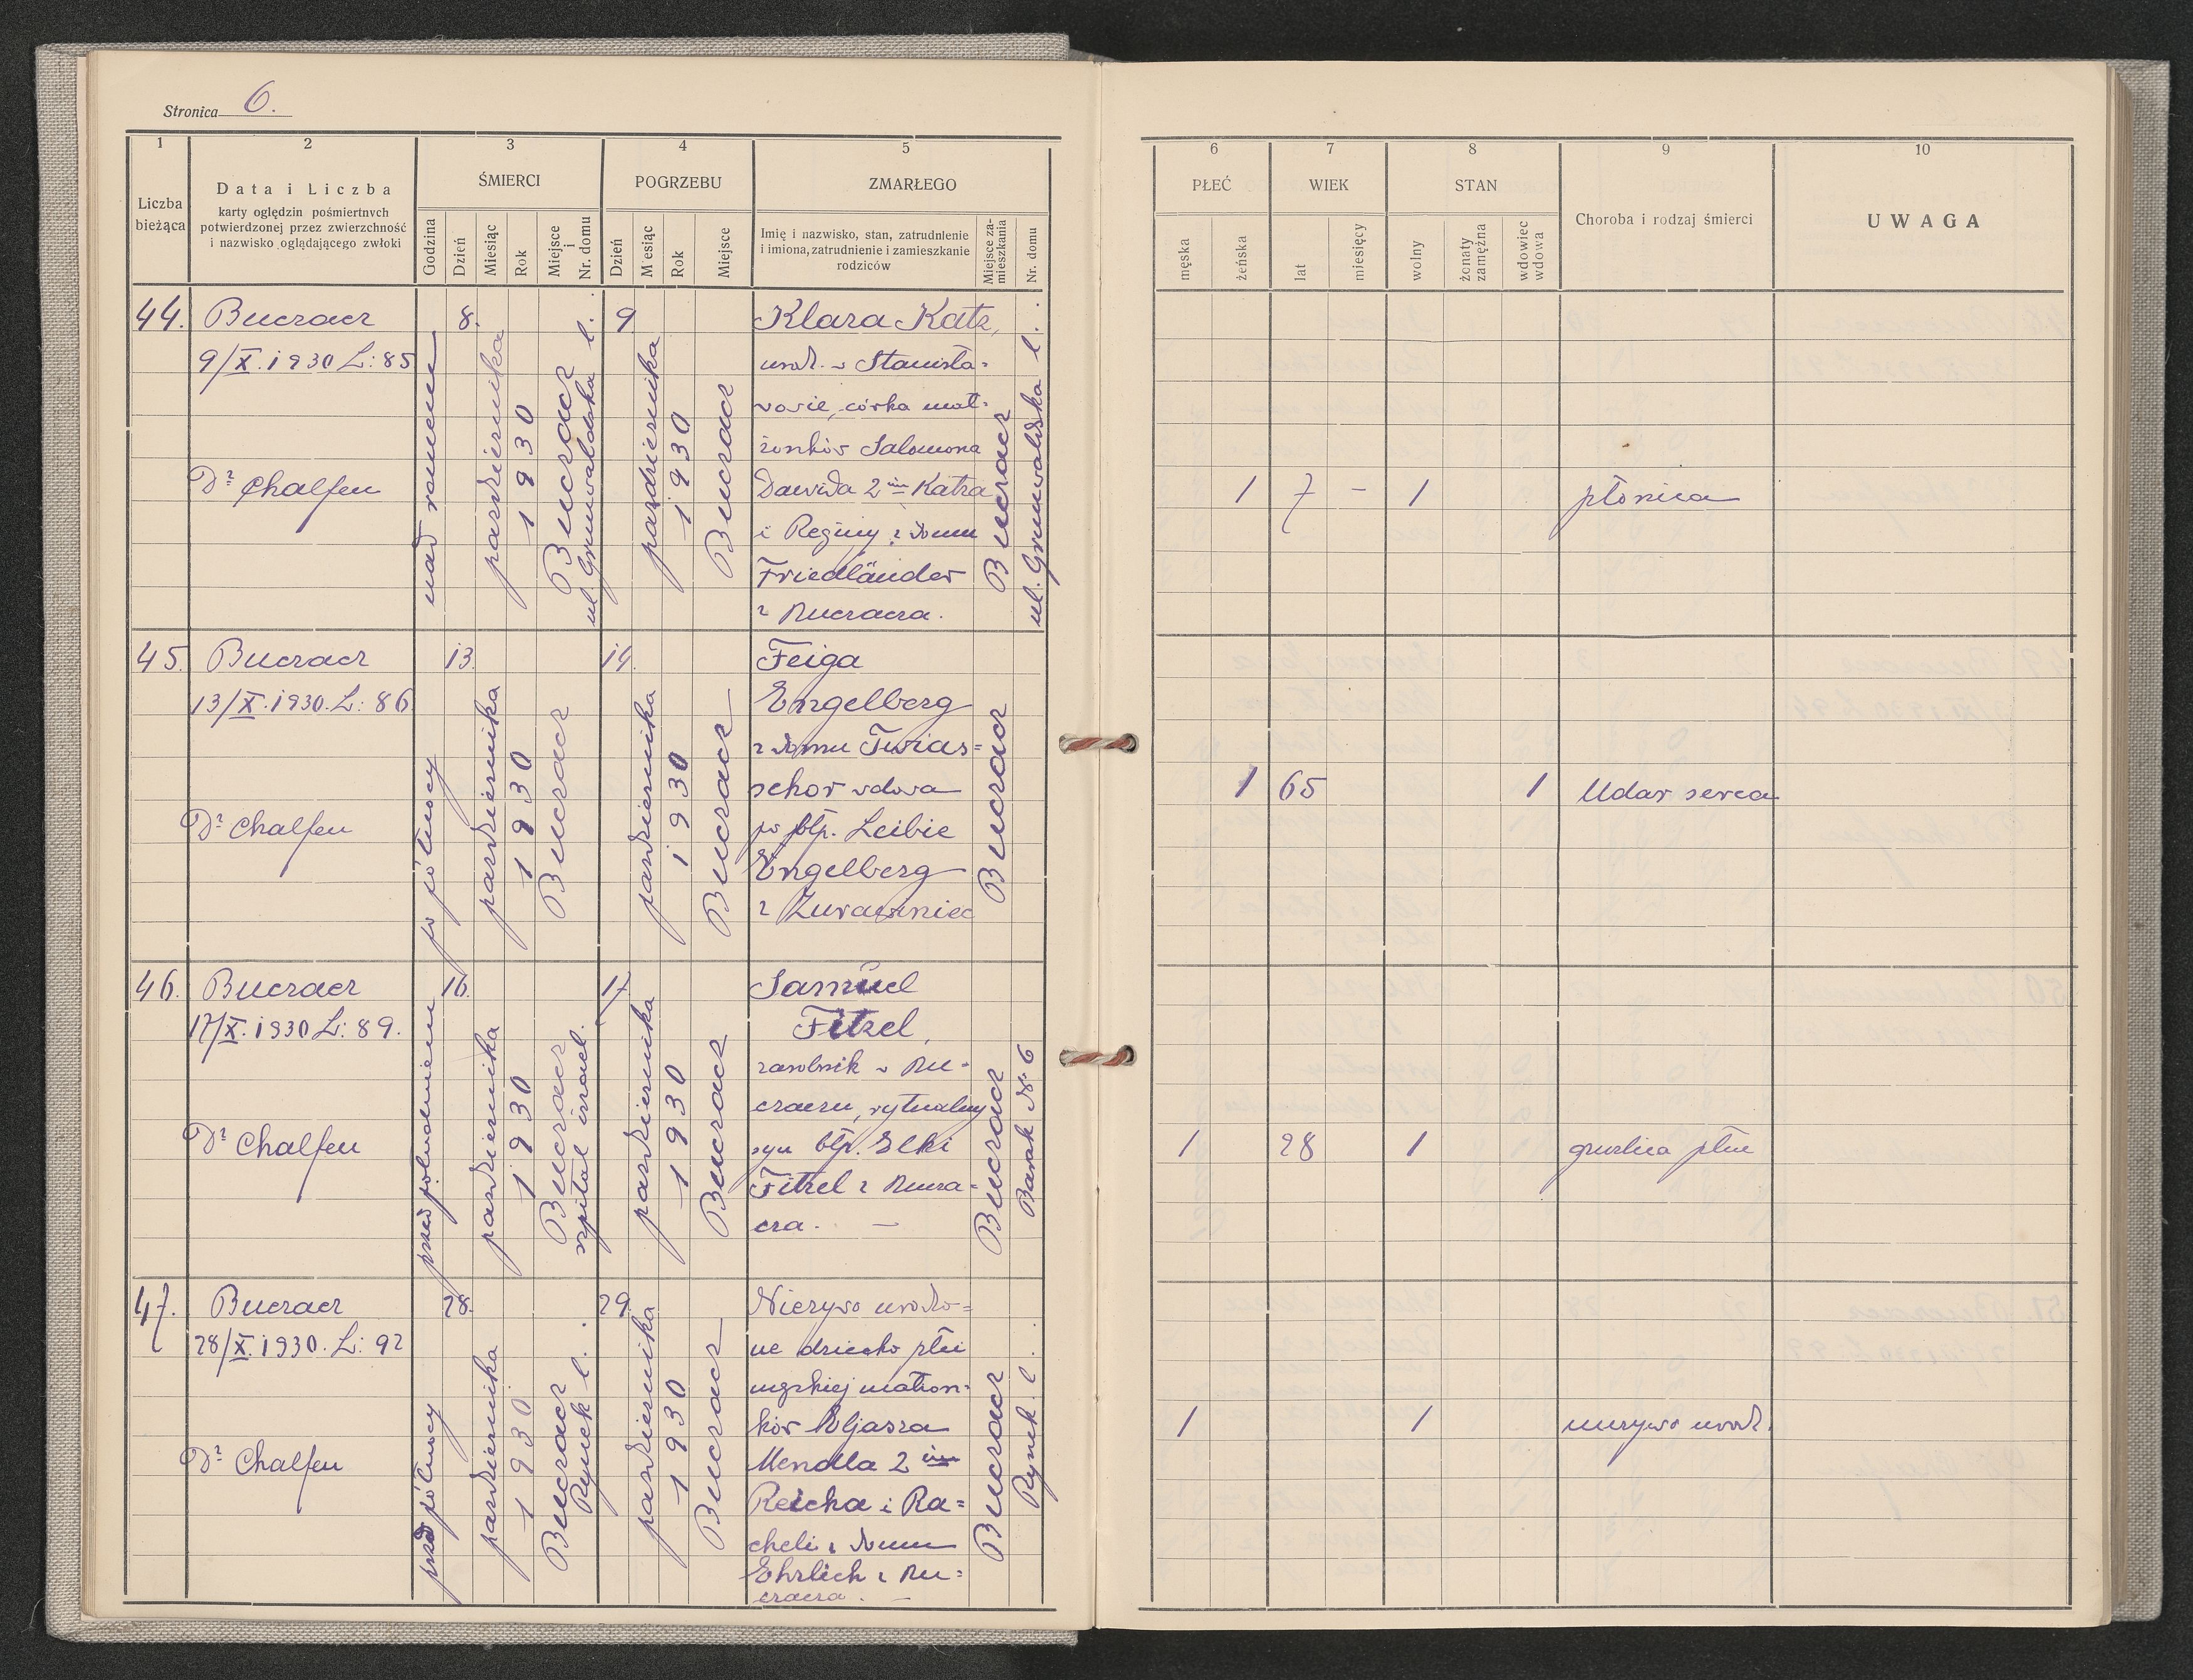 Stronica 6.
1 2 3 4 5
Liczba bieżąca
Data i Liczba
karty oględzin pośmiertnych
potwierdzonej przez zwierzchność
i nazwisko oglądającego zwłoki
ŚMIERCI
Godzina
Dzień
Miesiąc
Rok
Miejsce i Nr. domu
POGRZEBU
Dzień
M esiąc
Rok
Miejsce
ZMARŁEGO
Imię i nazwisko, stan, zatrudnienie
i imiona, zatrudnienie i zamieszkanie
rodziców
Miejsce zamieszkania
Nr. domu
44.
Buczacz
9/X. 1930 L: 85
Dr Chalfen
nad ranem
8.
października
1930
Buczacz
ul. Grunwaldzka l. .
9
października
1930
Buczacz
Klara Katz,
urodz. w Stanisła=
wowie, córka mał=
żonków Salomona
Dawida 2 im Katza
i Reginy z domu
Friedländer
z Buczacza.
Buczacz
ul. Grunwaldzka l. .
45.
Buczacz
13/X. 1930. L: 86
Dr Chalfen
po północy
13.
października
1930
Buczacz
14.
października
1930
Buczacz
Feiga
Engelberg
z domu Twias=
schor wdowa
po błp. Leibie
Engelberg
z
Buczacz
46.
Buczacz
17/X. 1930 L: 89.
Dr Chalfen
przed południem
16.
października
1930
Buczacz
szpital izrael.
17
października
1930
Buczacz
Samuel
Fitzel,
zarobnik w Bu=
czaczu, rytualny
syn błp. Elki
Fitzel z Bucza=
cza. —
Buczacz
Barak Nr 6
47.
Buczacz
28/X. 1930. L: 92
Dr Chalfen
przed północy
28.
października
1930.
Buczacz
Rynek l. .
29.
października
1930
Buczacz
Nieżywo urodzo=
ne dziecko płci
męzkiej małżon=
ków Eljasza
Mendla 2 im
Reicha i Ra=
cheli z domu
Ehrlich z Bu=
czacza. —
Buczacz
Rynek l. .
6 7 8 9 10
PŁEĆ
męska
żeńska
WIEK
lat
miesięcy
STAN
wolny
żonaty zamężna
wdowiec wdowa
Choroba i rodzaj śmierci
UWAGA
1 7 — 1 płonica
1 65 1 Udar serca
1 28 1 gruźlica płuc
1 1 nieżywo urodz.